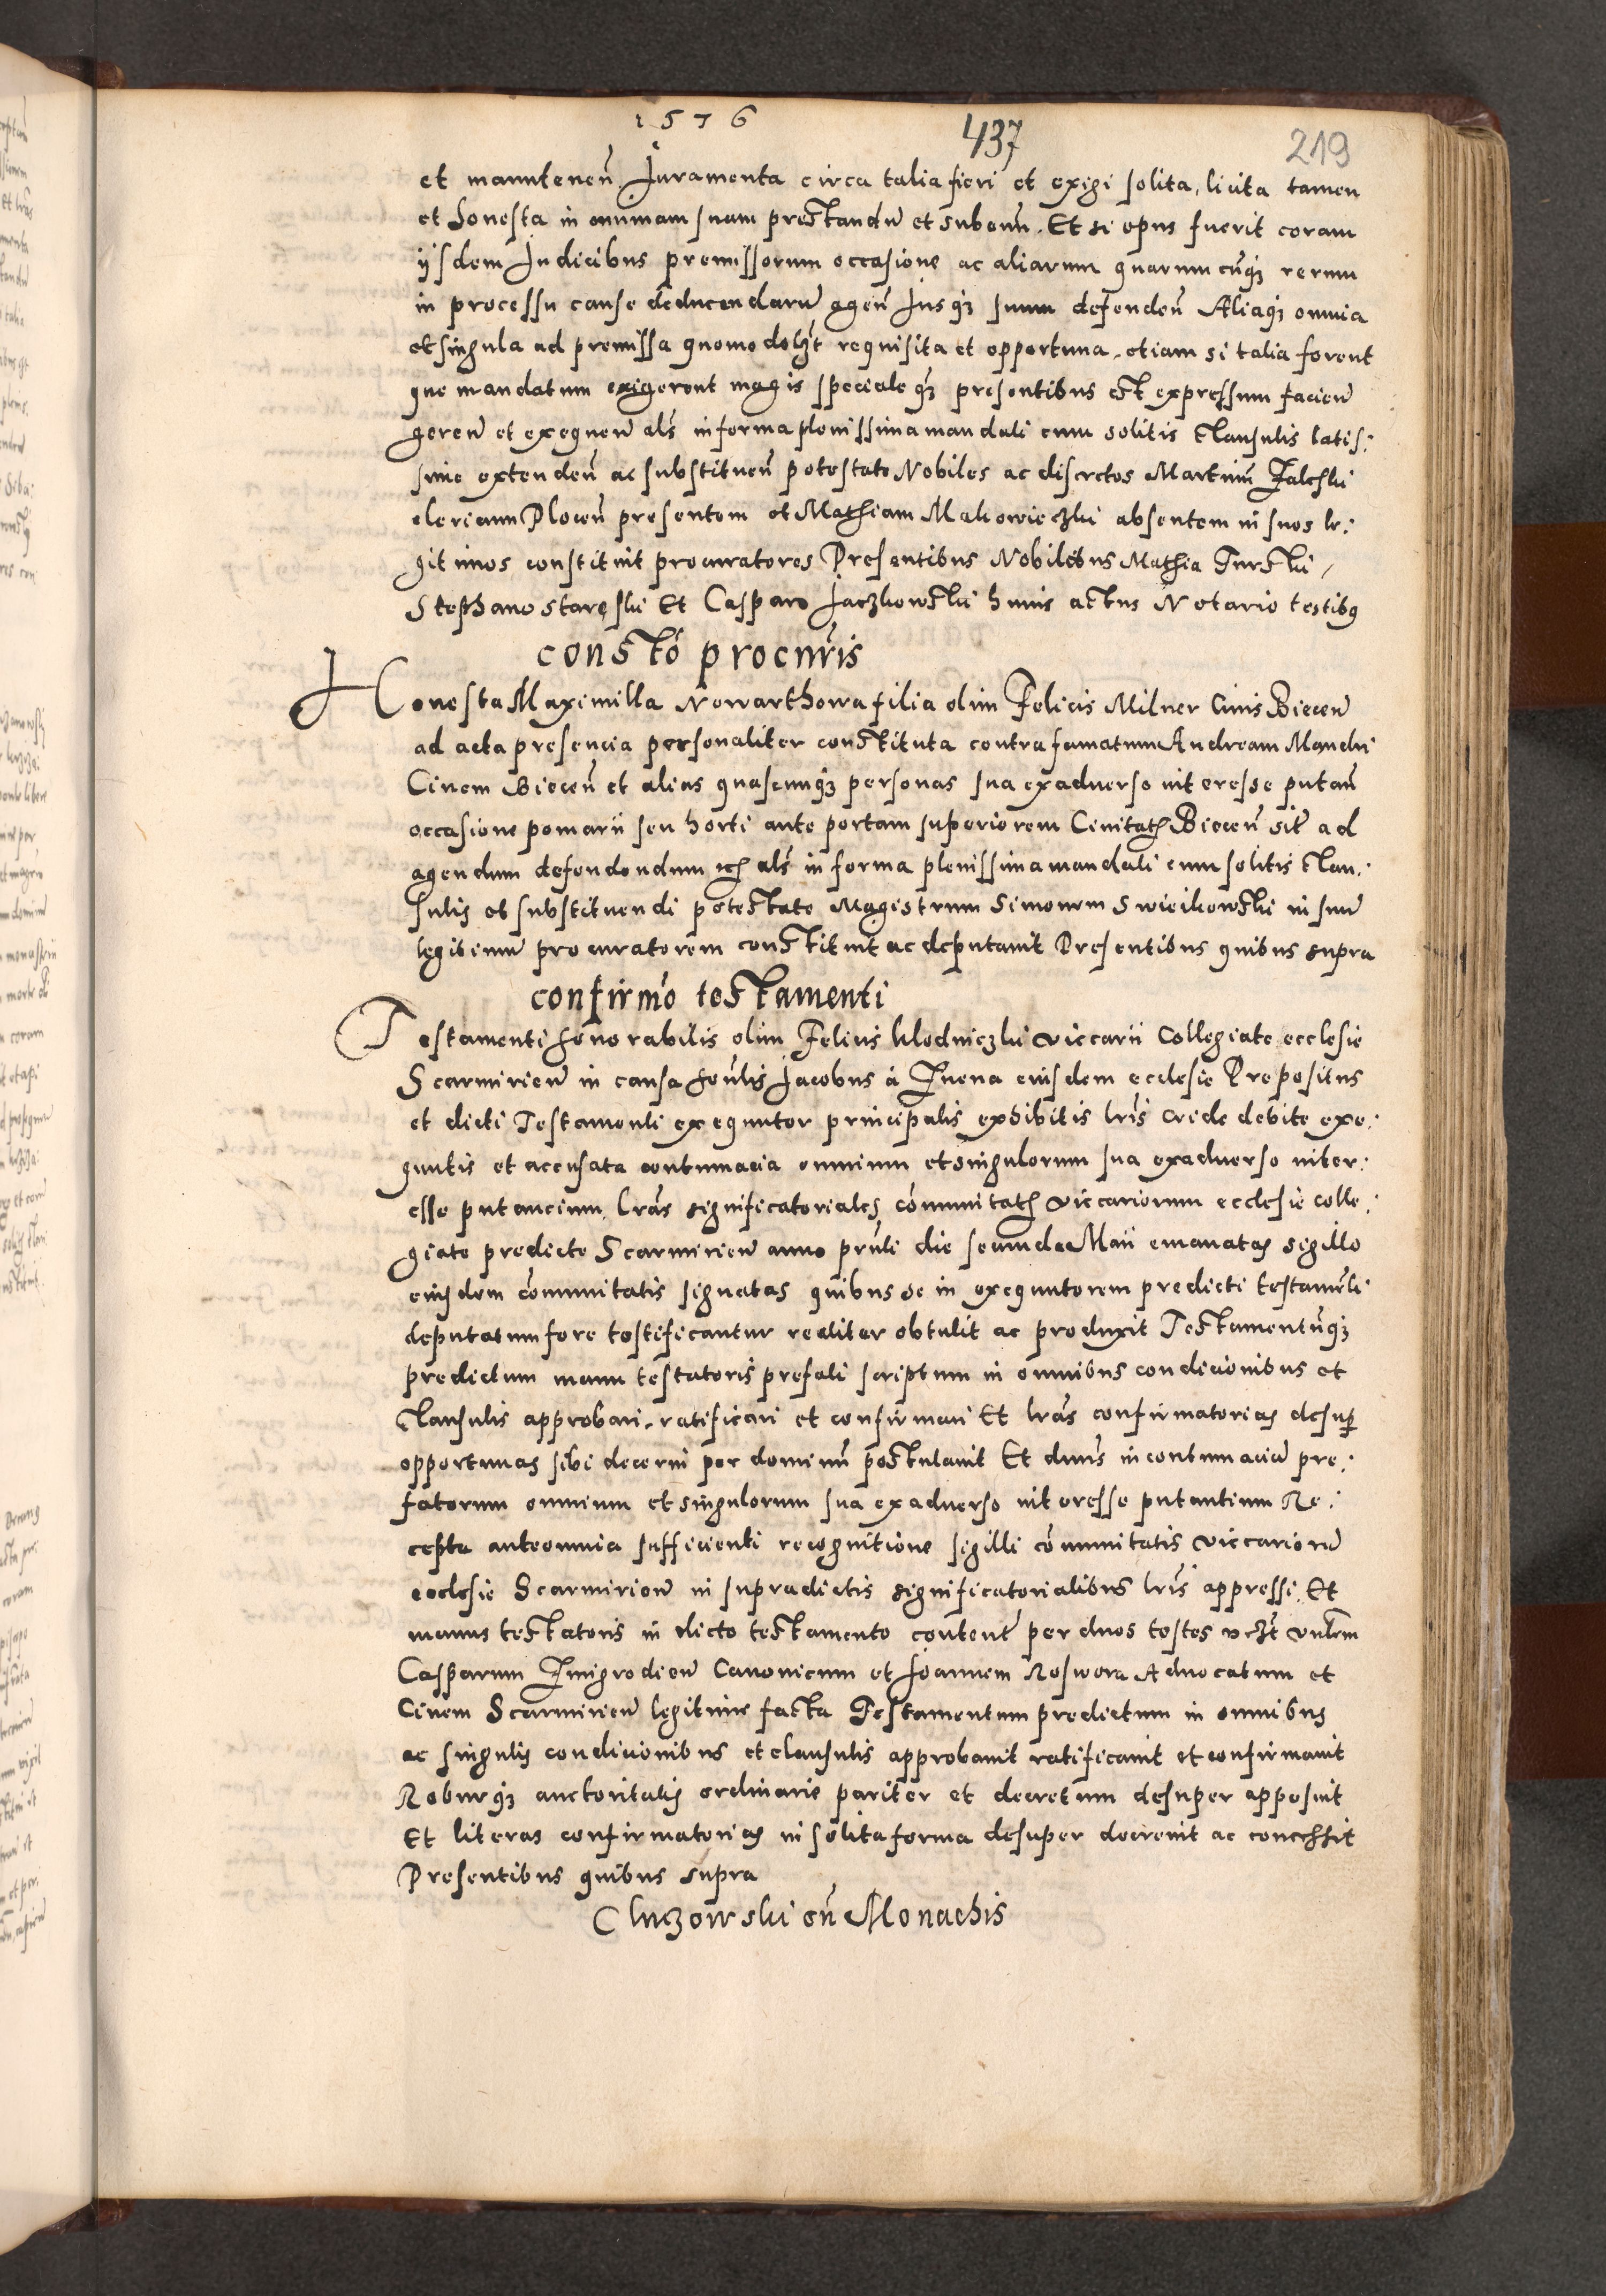 1576
437
219
et manuteneñ Juramenta circa talia fieri et exigi solita, licita tamen
et honesta in animam suam prestandũ et subeuñ. Et si opus fuerit coram
ijsdem Judicibus premissorum occasione ac aliarum quarumcũqꝫ rerum
in processu cause deducendarũ ageñ Jusqꝫ suum defendeñ Aliaqꝫ omnia
et singula ad premissa quomodolꝫt requisita et opportuna, etiam si talia forent
que mandatum exigerent magis speciale qꝫ presentibus est expressum facieñ
gereñ et exequeñ als in forma plenissima mandati cum solitis clausulis latis:
sime extendeñ ac substitueñ potestate Nobiles ac discretos Martinũ Zaleski
clericum Ploceñ presentem et Mathiam Makowieczki absentem in suos le:
gitimos constituit procuratores Presentibus Nobilibus Mathia Turski,
Stephano Staręski Et Casparo Jaczkowski huius actus Notario testibꝰ
constõ procuris
Honesta Maximilla Nowarthowa filia olim Felicis Milner Civis Bieceñ
ad acta presencia personaliter constituta contra famatum Andream Mandri
Civem Bieceñ et alias quascunqꝫ personas sua exadverso interesse putañ
occasione pomarii seu horti ante portam superiorem Civitatis Bieceñ sit ad
agendum defendendum etc als in forma plenissima mandati cum solitis clau:
sulis et substituendi potestate Magistrum Simonem Swieikowski in suũ
legitimũ procuratorem constituit ac deputavit Presentibus quibus supra
confirmõ testamenti
Testamenti honorabilis olim Felicis Klodniczki viccarii Collegiate ecclesie
Scarmirieñ in causa hoñlis Jacobus á Zuena eiusdem ecclesie Prepositus
et dicti Testamenti exequutor principalis exhibitis lris Cride debite exe:
quutis et accusata contumacia omnium et singulorum sua exadverso inter:
esse putancium, lras significatoriales communitatis viccariorum ecclesie colle:
giate predicte Scarmirieñ anno prñti die secunda Maii emanatas sigillo
eiusdem communitatis signatas quibus se in exequutorem predicti testamẽti
deputatum fore testificantur realiter obtulit ac produxit Testamentũqꝫ
predictum manu testatoris prefati scriptum in omnibus condicionibus et
Clausulis approbari, ratificari et confirmari Et lras confirmatorias desuꝑ
opportunas sibi decerni per dominũ postulavit Et dnus in contumaciã pre:
fatorum omnium et singulorum sua exadverso interesse putantium Re:
cepta ante omnia sufficienti recognitione sigilli communitatis viccariorũ
ecclesie Scarmirieñ in supradictis significatorialibus lris appressi. Et
manus testatoris in dicto testamento conteñt per duos testes
Casparum Zmigrodieñ Canonicum et Joannem Roswora Advocatum et
Civem Scarmirieñ legitime facta Testamentum predictum in omnibus
ac singulis condicionibus et clausulis approbavit ratificavit et confirmavit
Roburqꝫ auctoritatis ordinarie pariter et decretum desuper apposuit
Et literas confirmatorias in solita forma desuper decrevit ac concessit
Presentibus quibus supra
Cluczowski cũ Monachis